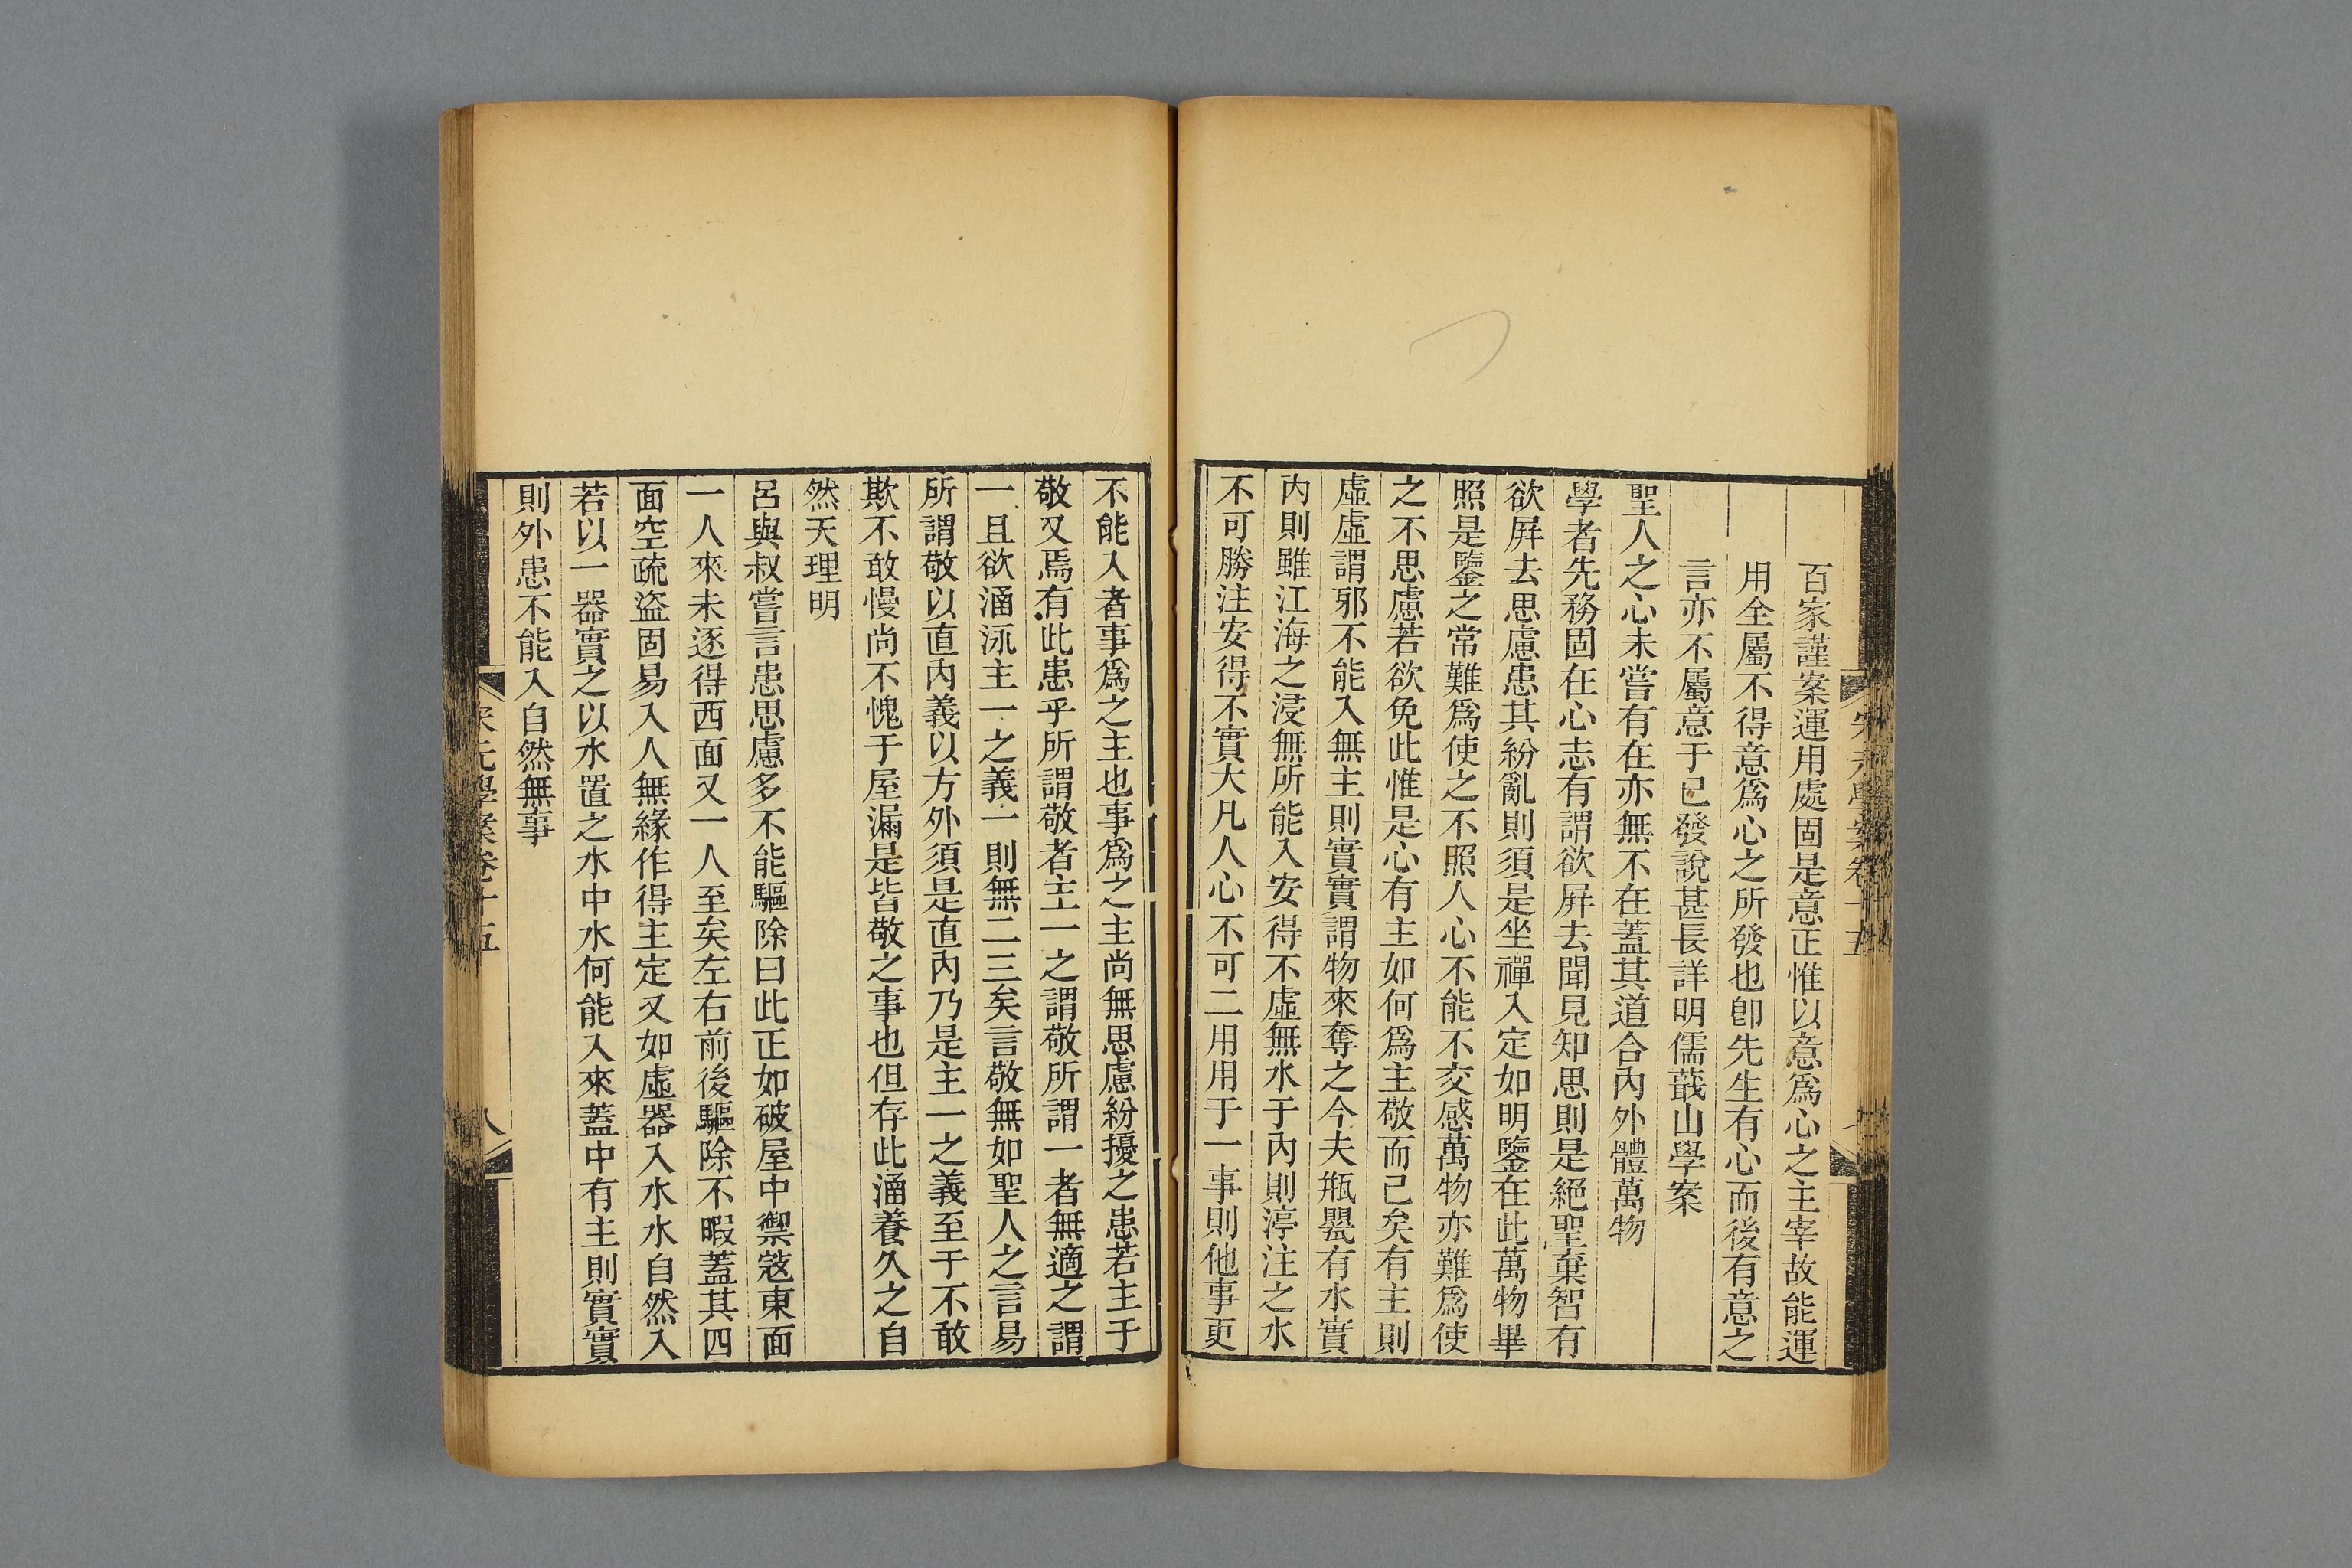 百家謹案運用處固是意正惟以意爲心之主宰故能運
用全屬不得意爲心之所發也卽先生有心而後有意之
言亦不屬意于已發說甚長詳明儒蕺山學案
聖人之心未嘗有在亦無不在蓋其道合內外體萬物
學者先務固在心志有謂欲屛去聞見知思則是絕聖棄智有
欲屛去思慮患其紛亂則須是坐禪入定如明鑒在此萬物畢
照是鑒之常難爲使之不照人心不能不交感萬物亦難爲使
之不思慮若欲免此惟是心有主如何爲主敬而已矣有主則
虛虛謂邪不能入無主則實實謂物來奪之今夫瓶甖有水實
內則雖江海之浸無所能入安得不虛無水于內則渟注之水
不可勝注安得不實大凡人心不可二用用于一事則他事更
不能入者事爲之主也事爲之主尚無思慮紛擾之患若主于
敬又焉有此患乎所謂敬者主一之謂敬所謂一者無適之謂
一且欲涵泳主一之義一則無二三矣言敬無如聖人之言易
所謂敬以直內義以方外須是直內乃是主一之義至于不敢
欺不敢慢尚不愧于屋漏是皆敬之事也但存此涵養久之自
然天理明
呂與叔嘗言患思慮多不能驅除曰此正如破屋中禦寇東面
一人來未逐得西面又一人至矣左右前後驅除不暇蓋其四
面空疏盜固易入人無緣作得主定又如虛器入水水自然入
若以一器實之以水置之水中水何能入來蓋中有主則實實
則外患不能入自然無事
宋元學案卷十五
八